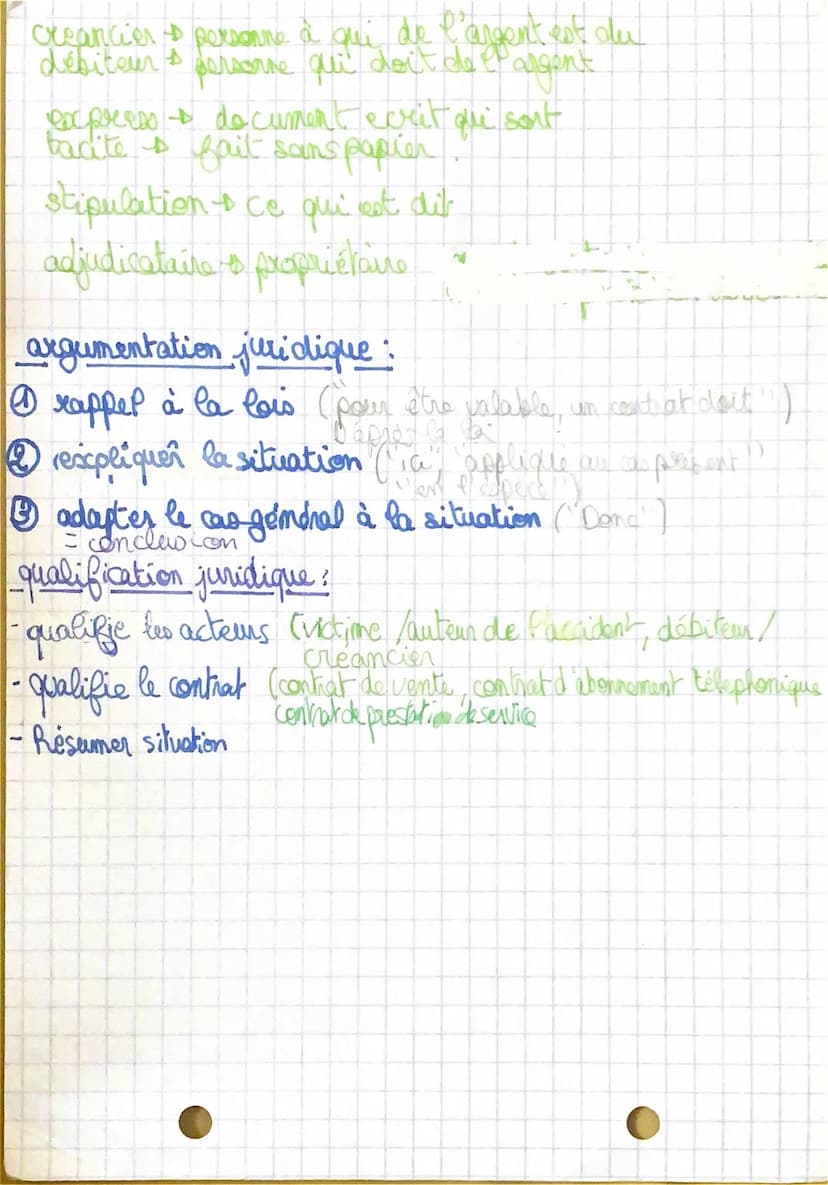 creancier → personne à qui de l'argent est du
débiteur → personne qui doit de l'argent
express → document ecrit qui sont
tacite → fait sans papier.
stipulation → ce qui est dit
adjudicataire → propriétaire
argumentation juridique :
① rappel à la lois ("pour être valable, un contrat doit")
D'après la loi
② réexpliquer la situation ("ici", "appliqué au cas présent"
"en l'espèce")
③ adapter le cas général à la situation ("Donc")
= conclusion
qualification juridique :
- qualifie les acteurs (victime / auteur de l'accident, débiteur /
créancier
- qualifie le contrat (contrat de vente, contrat d'abonnement télephonique
contrat de prestation de service
- Résumer situation